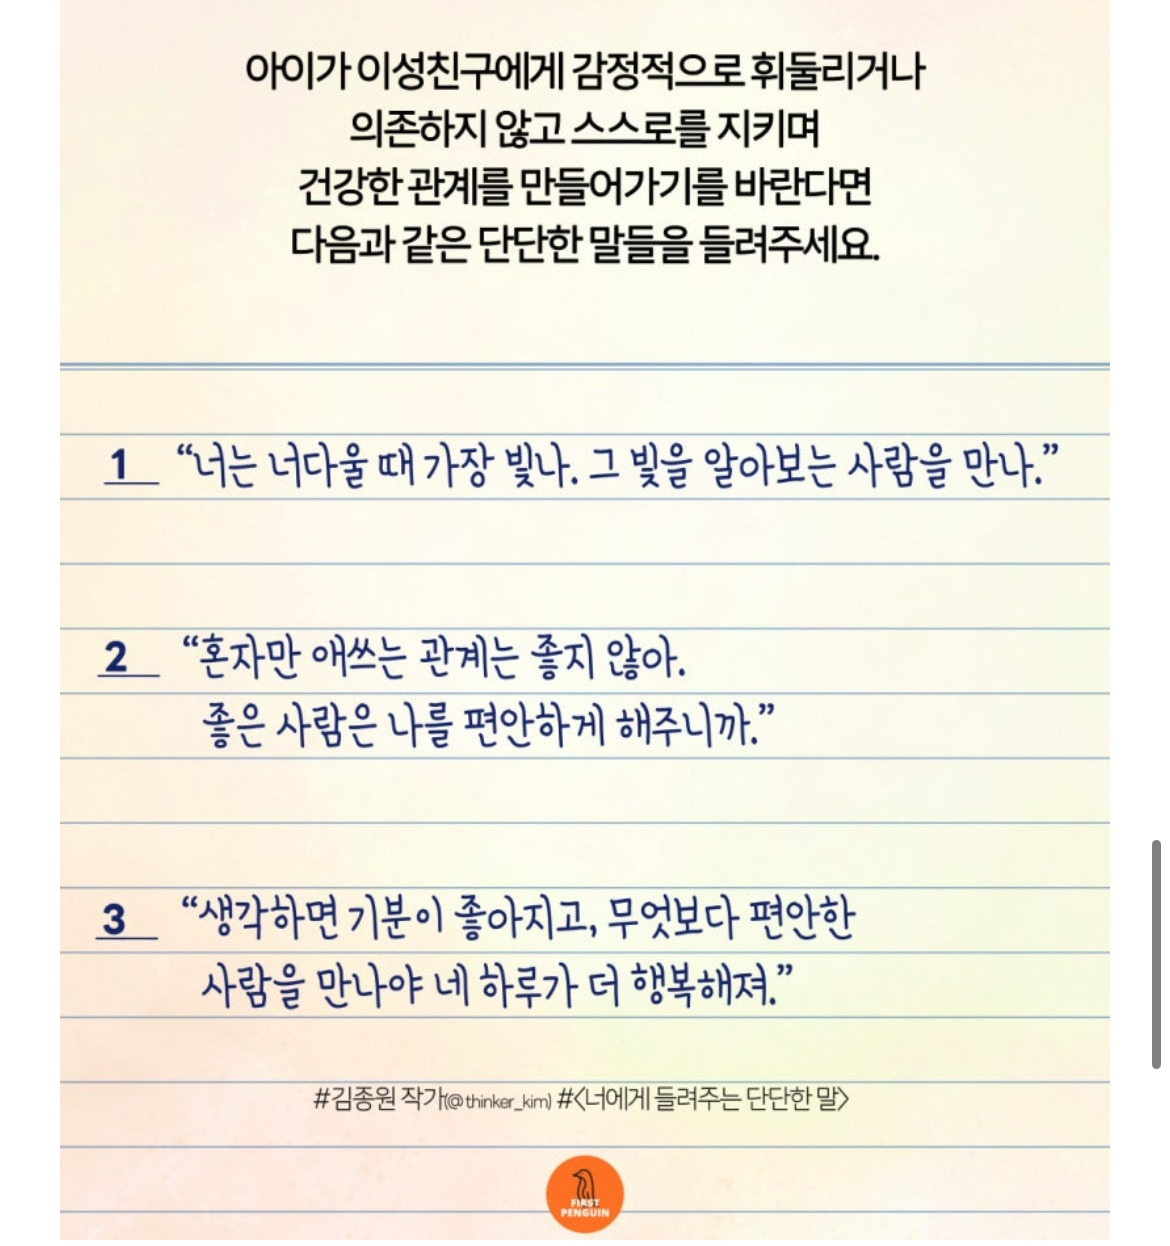 아이가 이성친구에게 감정적으로 휘둘리거나
의존하지 않고 스스로를 지키며
건강한 관계를 만들어가기를 바란다면
다음과 같은 단단한 말들을 들려주세요.
1 “너는 너다울 때 가장 빛나. 그 빛을 알아보는 사람을 만나.”
2 “혼자만 애쓰는 관계는 좋지 않아.
좋은 사람은 나를 편안하게 해주니까.”
3 “생각하면 기분이 좋아지고, 무엇보다 편안한
사람을 만나야 네 하루가 더 행복해져.”
#김종원 작가(@thinker_kim) #<너에게 들려주는 단단한 말>
FIRST
PENGUIN